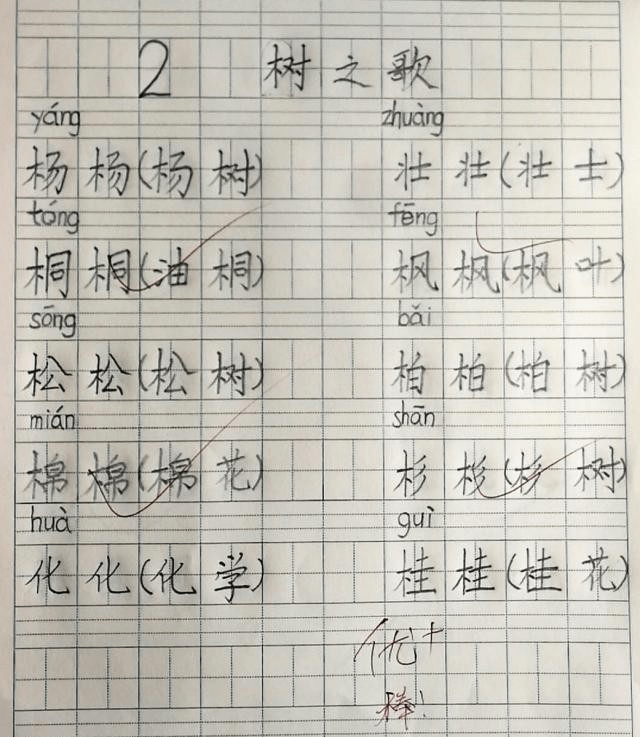 2 树之歌
yáng zhuàng
杨 杨(杨 树) 壮 壮(壮 士)
tóng fēng
桐 桐(油 桐) 枫 枫(枫 叶)
sōng bǎi
松 松(松 树) 柏 柏(柏 树)
mián shān
棉 棉(棉 花) 杉 杉(杉 树)
huà guì
化 化(化 学) 桂 桂(桂 花)
优+
棒!